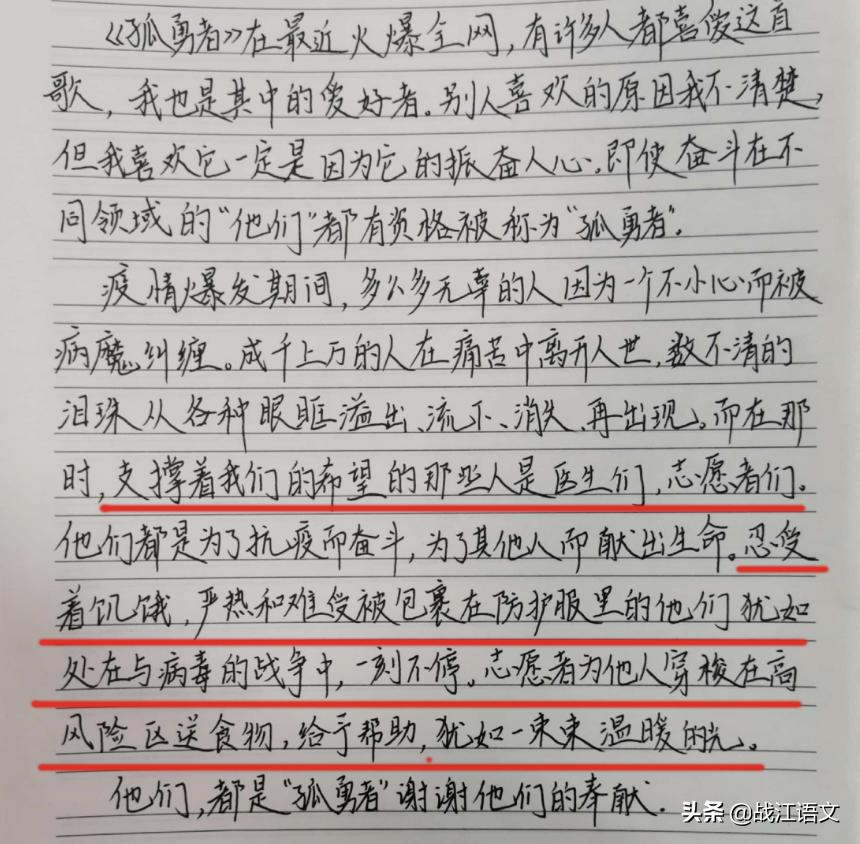 《孤勇者》在最近火爆全网,有许多人都喜爱这首
歌,我也是其中的爱好者。别人喜欢的原因我不清楚,
但我喜欢它一定是因为它的振奋人心。即使奋斗在不
同领域的“他们”都有资格被称为“孤勇者”.
疫情爆发期间,多么多无辜的人因为一个不小心而被
病魔纠缠。成千上万的人在痛苦中离开人世,数不清的
泪珠从各种眼眶溢出、流下、消失、再出现。而在那
时,支撑着我们的希望的那些人是医生们,志愿者们.
他们都是为了抗疫而奋斗,为了其他人而献出生命。忍受
着饥饿,严热和难受被包裹在防护服里的他们犹如
处在与病毒的战争中,一刻不停。志愿者为他人穿梭在高
风险区送食物,给予帮助,犹如一束束温暖的光。
他们,都是“孤勇者”谢谢他们的奉献.
头条 @战江语文